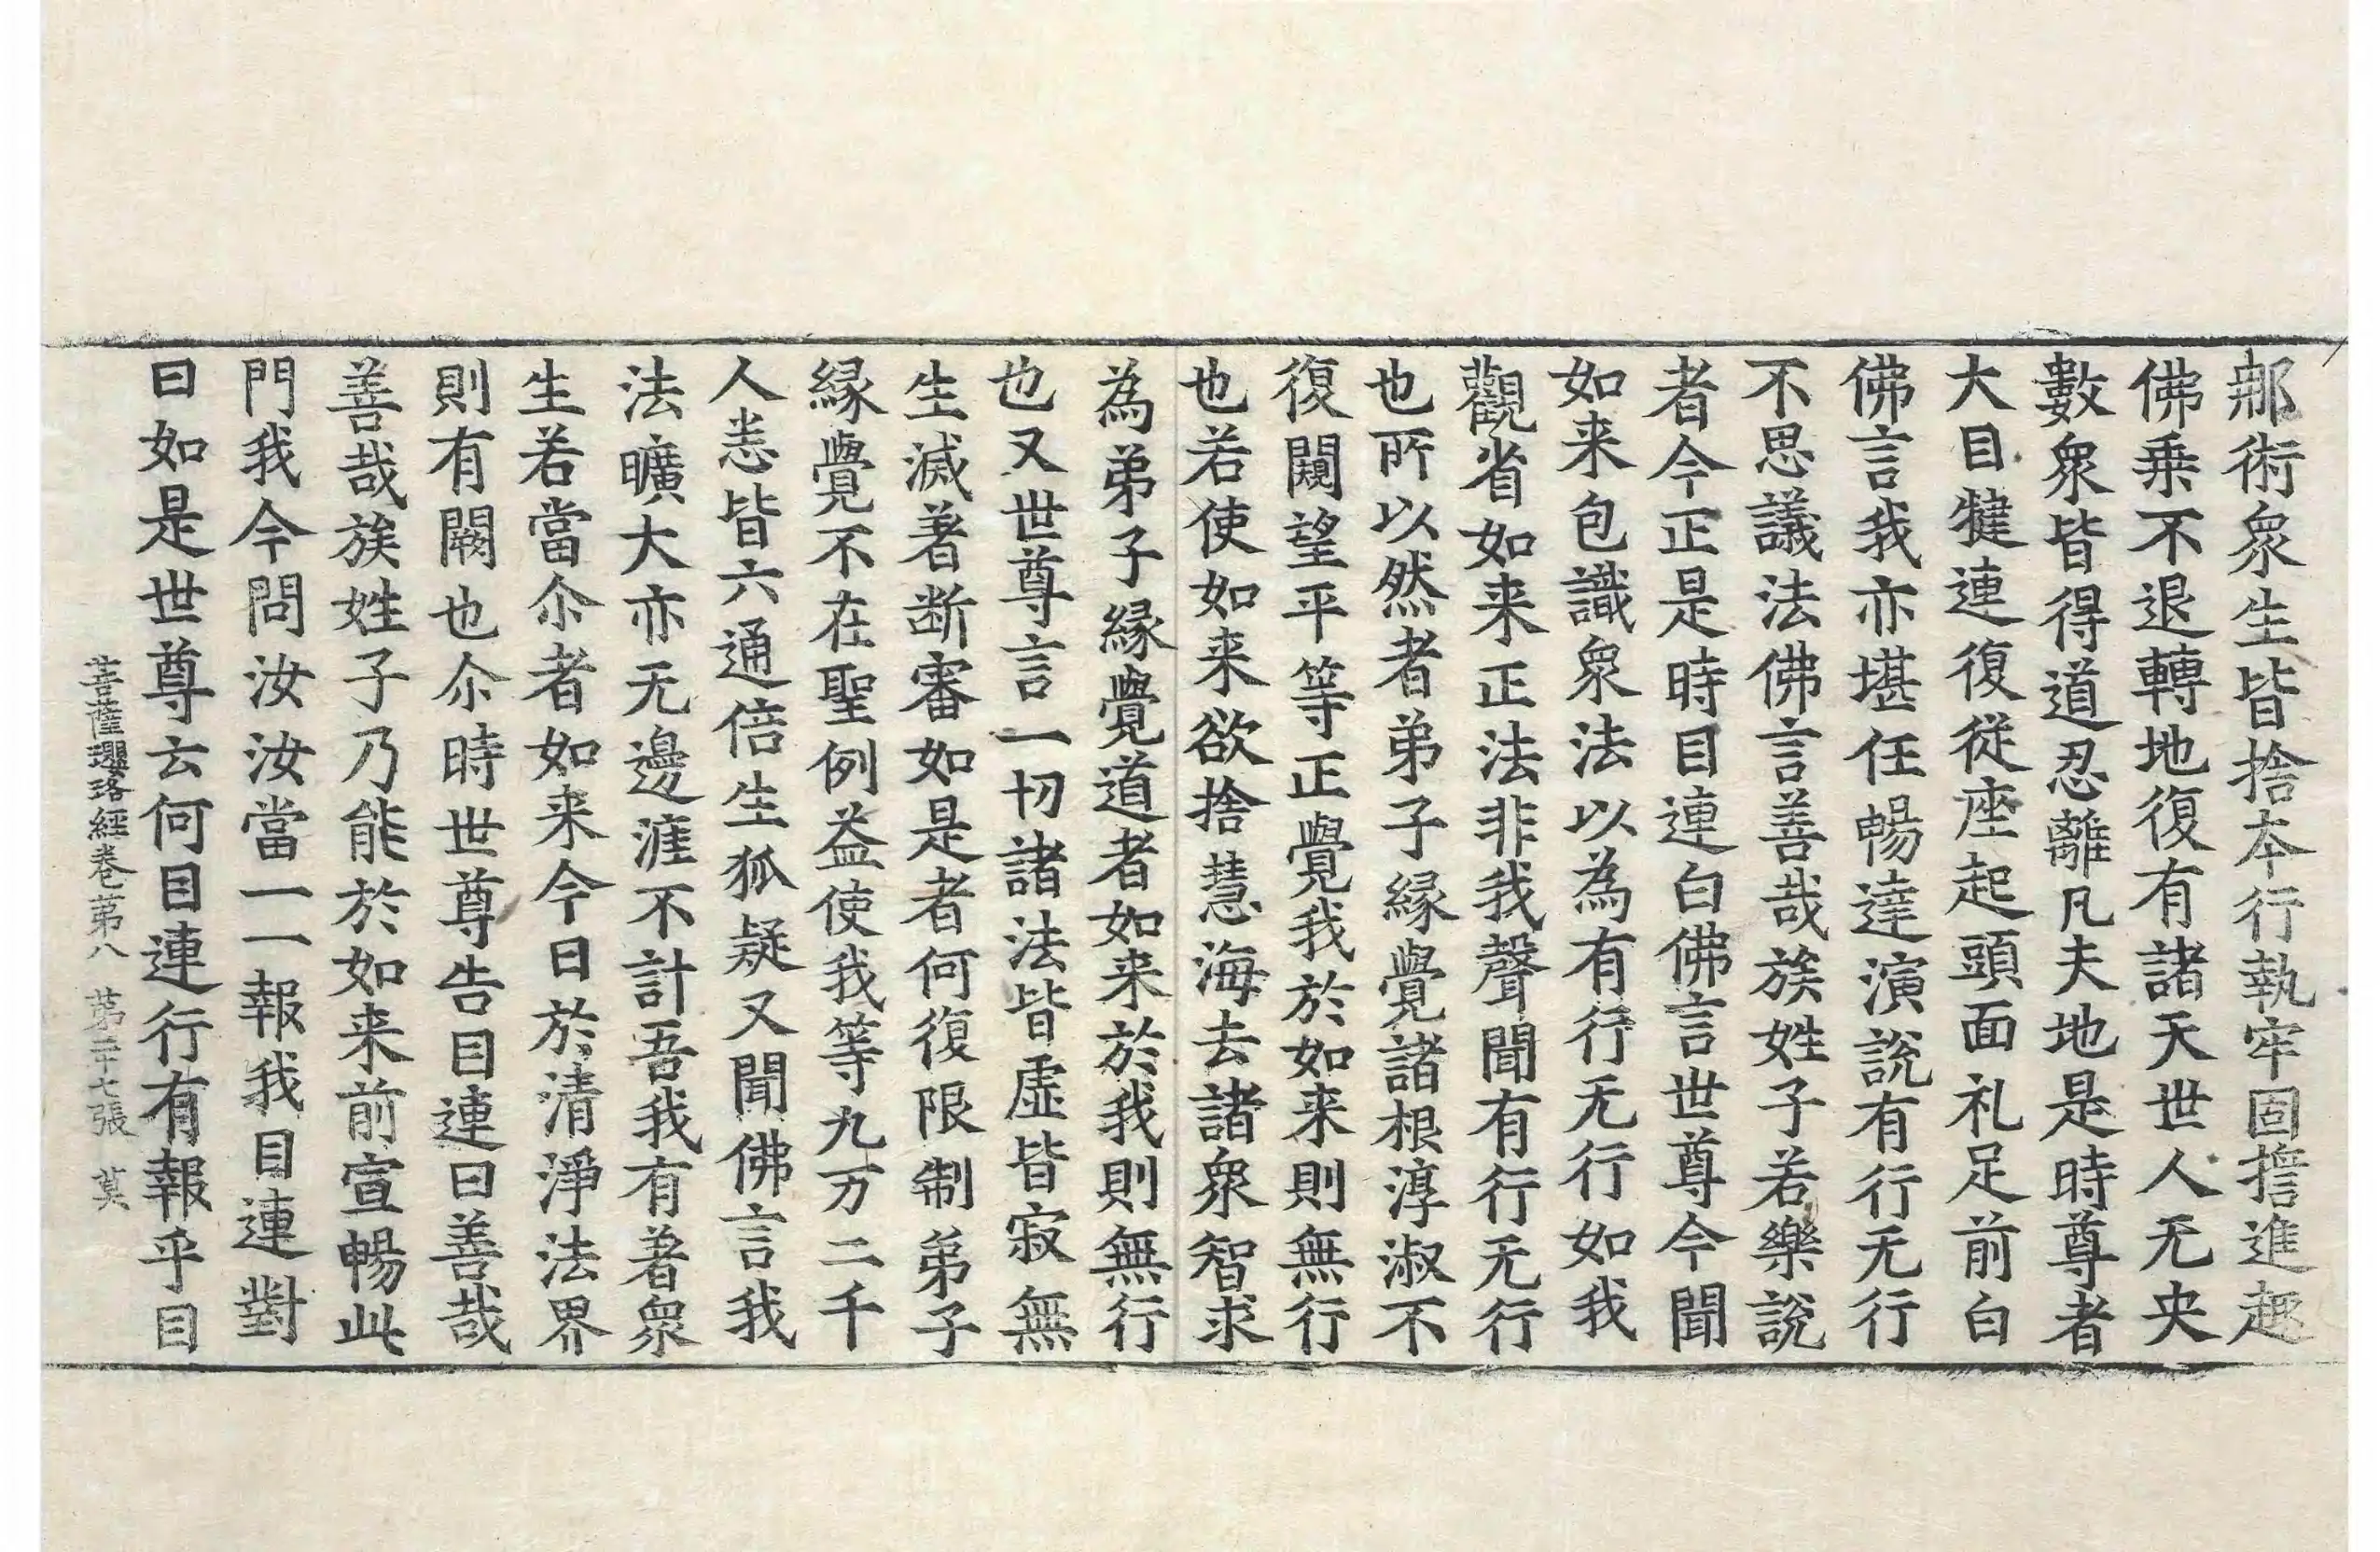 䣛術衆生皆捨本行執牢固擔進趣
佛乗不退轉地復有諸天世人无央
數衆皆得道忍離凡夫地是時尊者
大目犍連復從座起頭面礼足前白
佛言我亦堪任暢達演說有行无行
不思議法佛言善哉族姓子若樂說
者今正是時目連白佛言世尊今聞
如来包識衆法以為有行无行如我
觀省如来正法非我聲聞有行无行
也所以然者弟子縁覺諸根淳淑不
復闚望平等正覺我於如来則無行
也若使如来欲捨慧海去諸衆智求
為弟子縁覺道者如来於我則無行
也又世尊言一切諸法皆虛皆寂無
生滅著断審如是者何復限制弟子
縁覺不在聖例益使我等九万二千
人恙皆六通倍生狐疑又聞佛言我
法曠大亦无邊涯不計吾我有著衆
生若當尒者如来今日於清淨法界
則有闕也尒時世尊告目連曰善哉
善哉族姓子乃能於如来前宣暢此
門我今問汝汝當一一報我目連對
曰如是世尊云何目連行有報乎目
菩薩瓔珞經卷苐八 苐二十七張 莫